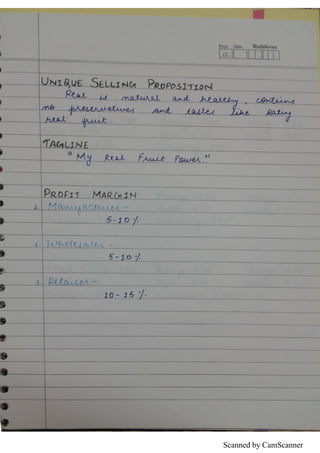 Page: Date: Workforus
UNIQUE SELLING PROPOSITION
Real is natural and healthy, contains
no preservatives and tastes like eating
real fruit.
TAGLINE
"My Real Fruit Power."
PROFIT MARGIN
1. Manufacturer -
5-10%
2. Wholesaler -
5-10%
3. Retailer -
10-15%.
Scanned by CamScanner